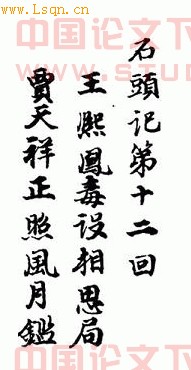 石頭记第十二回
王熙鳳毒设相思局
賈天祥正照風月鑑
www.Lsqn.cn
中国论文下
中国论文下